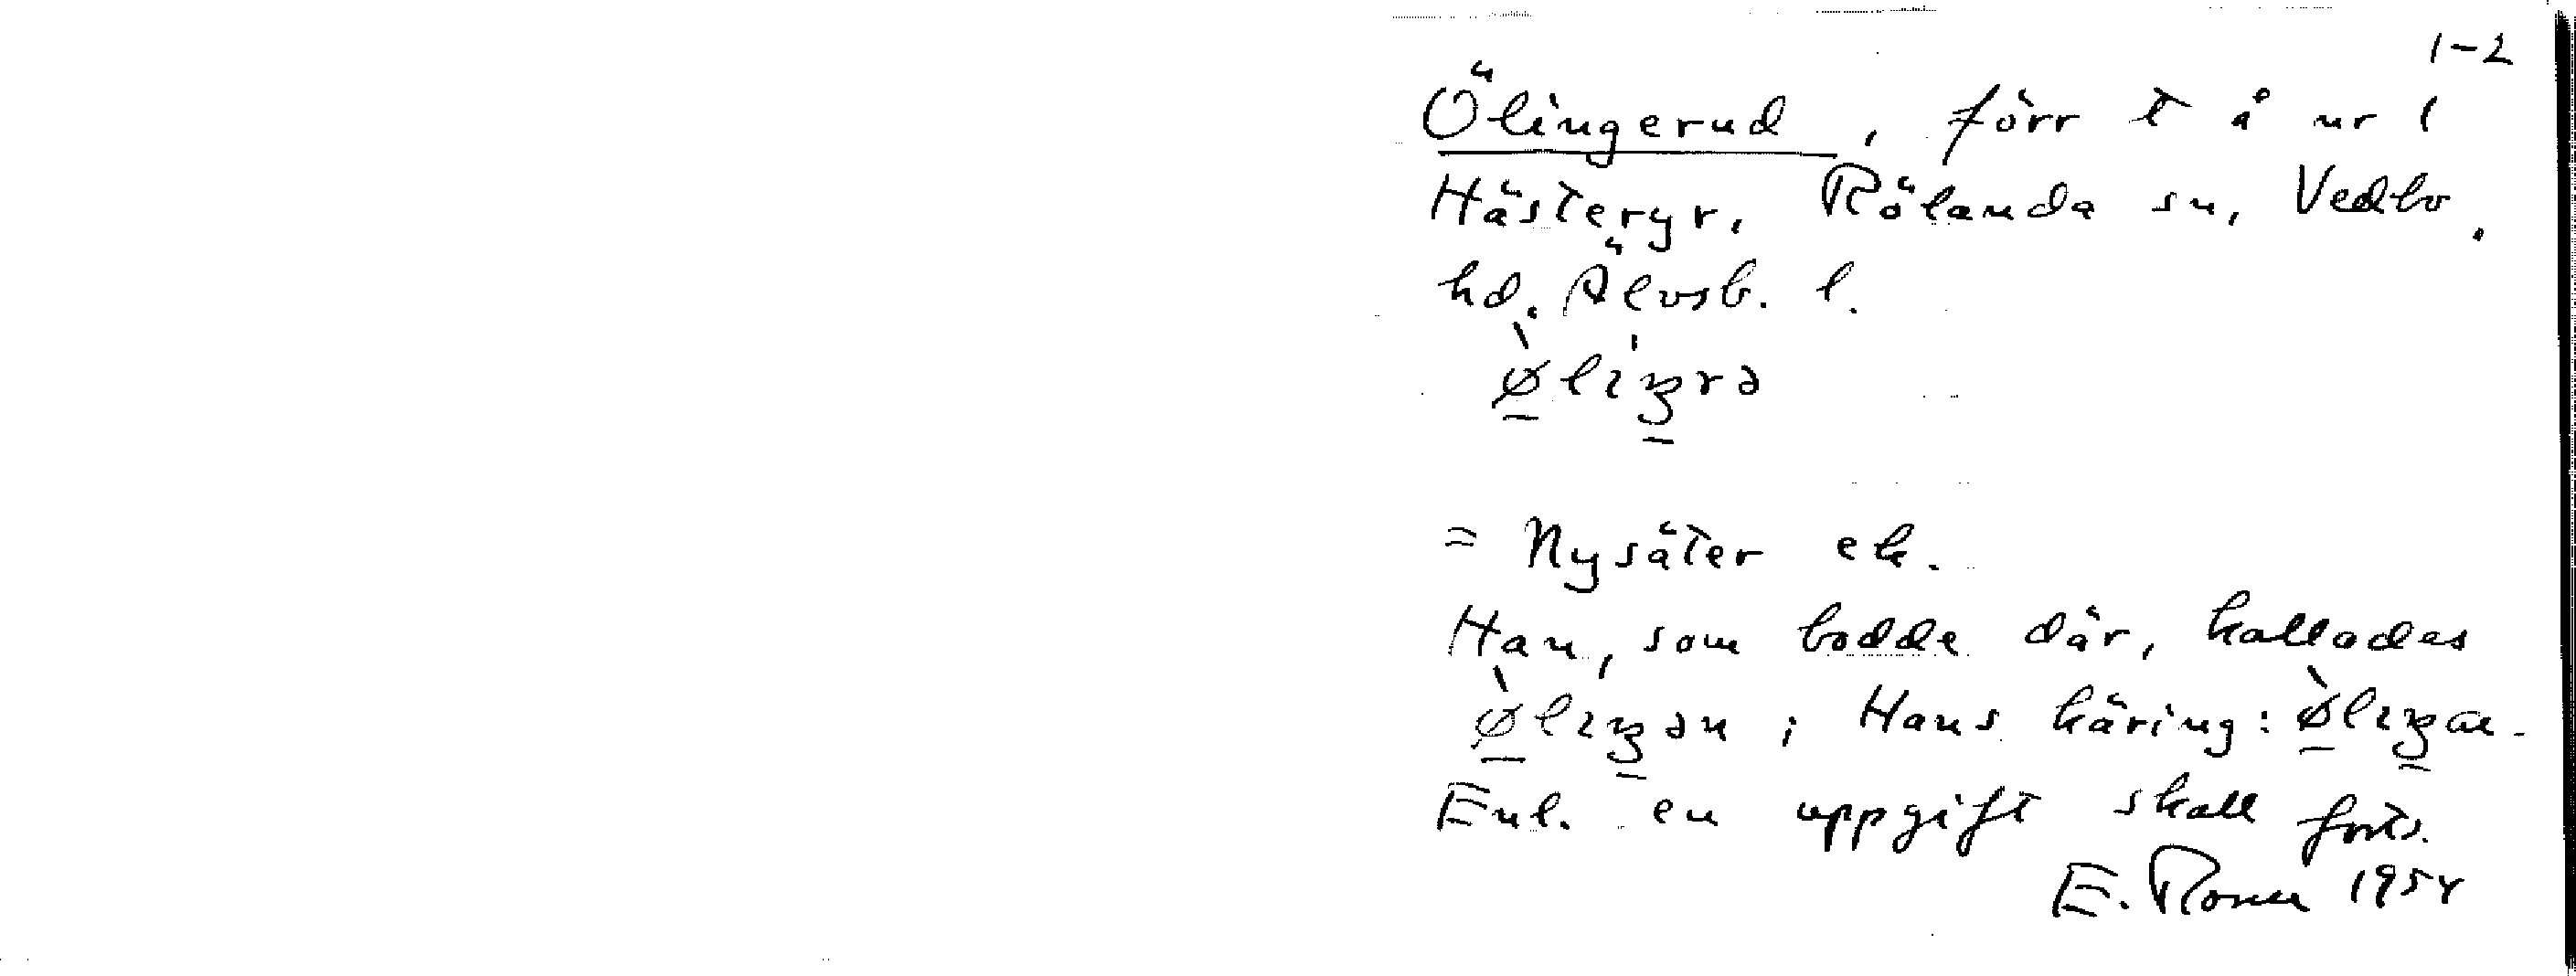 1-2
Ölingerud, förr t å nr 1
Hästeryr, Rölanda sn, Vedbo
hd. Älvsb. l.
ø̀lıŋrə
= Nysäter ek.
Han, som bodde där, kallades
ø̀lıŋən ; Hans käring: ø̀lıŋa.
Enl. en uppgift skall forts.
E. 1954